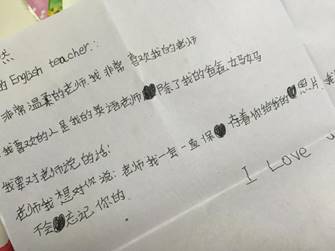 的English teacher:
非常温柔的老师.我非常喜欢我的老师
我喜欢的人是我的英语老师 除了我的爸爸,妈妈
我要对老师说的话:
老师我想对你说:老师我一定一直保 存着你给我的 照片,我
不会 忘记你的.
I Love